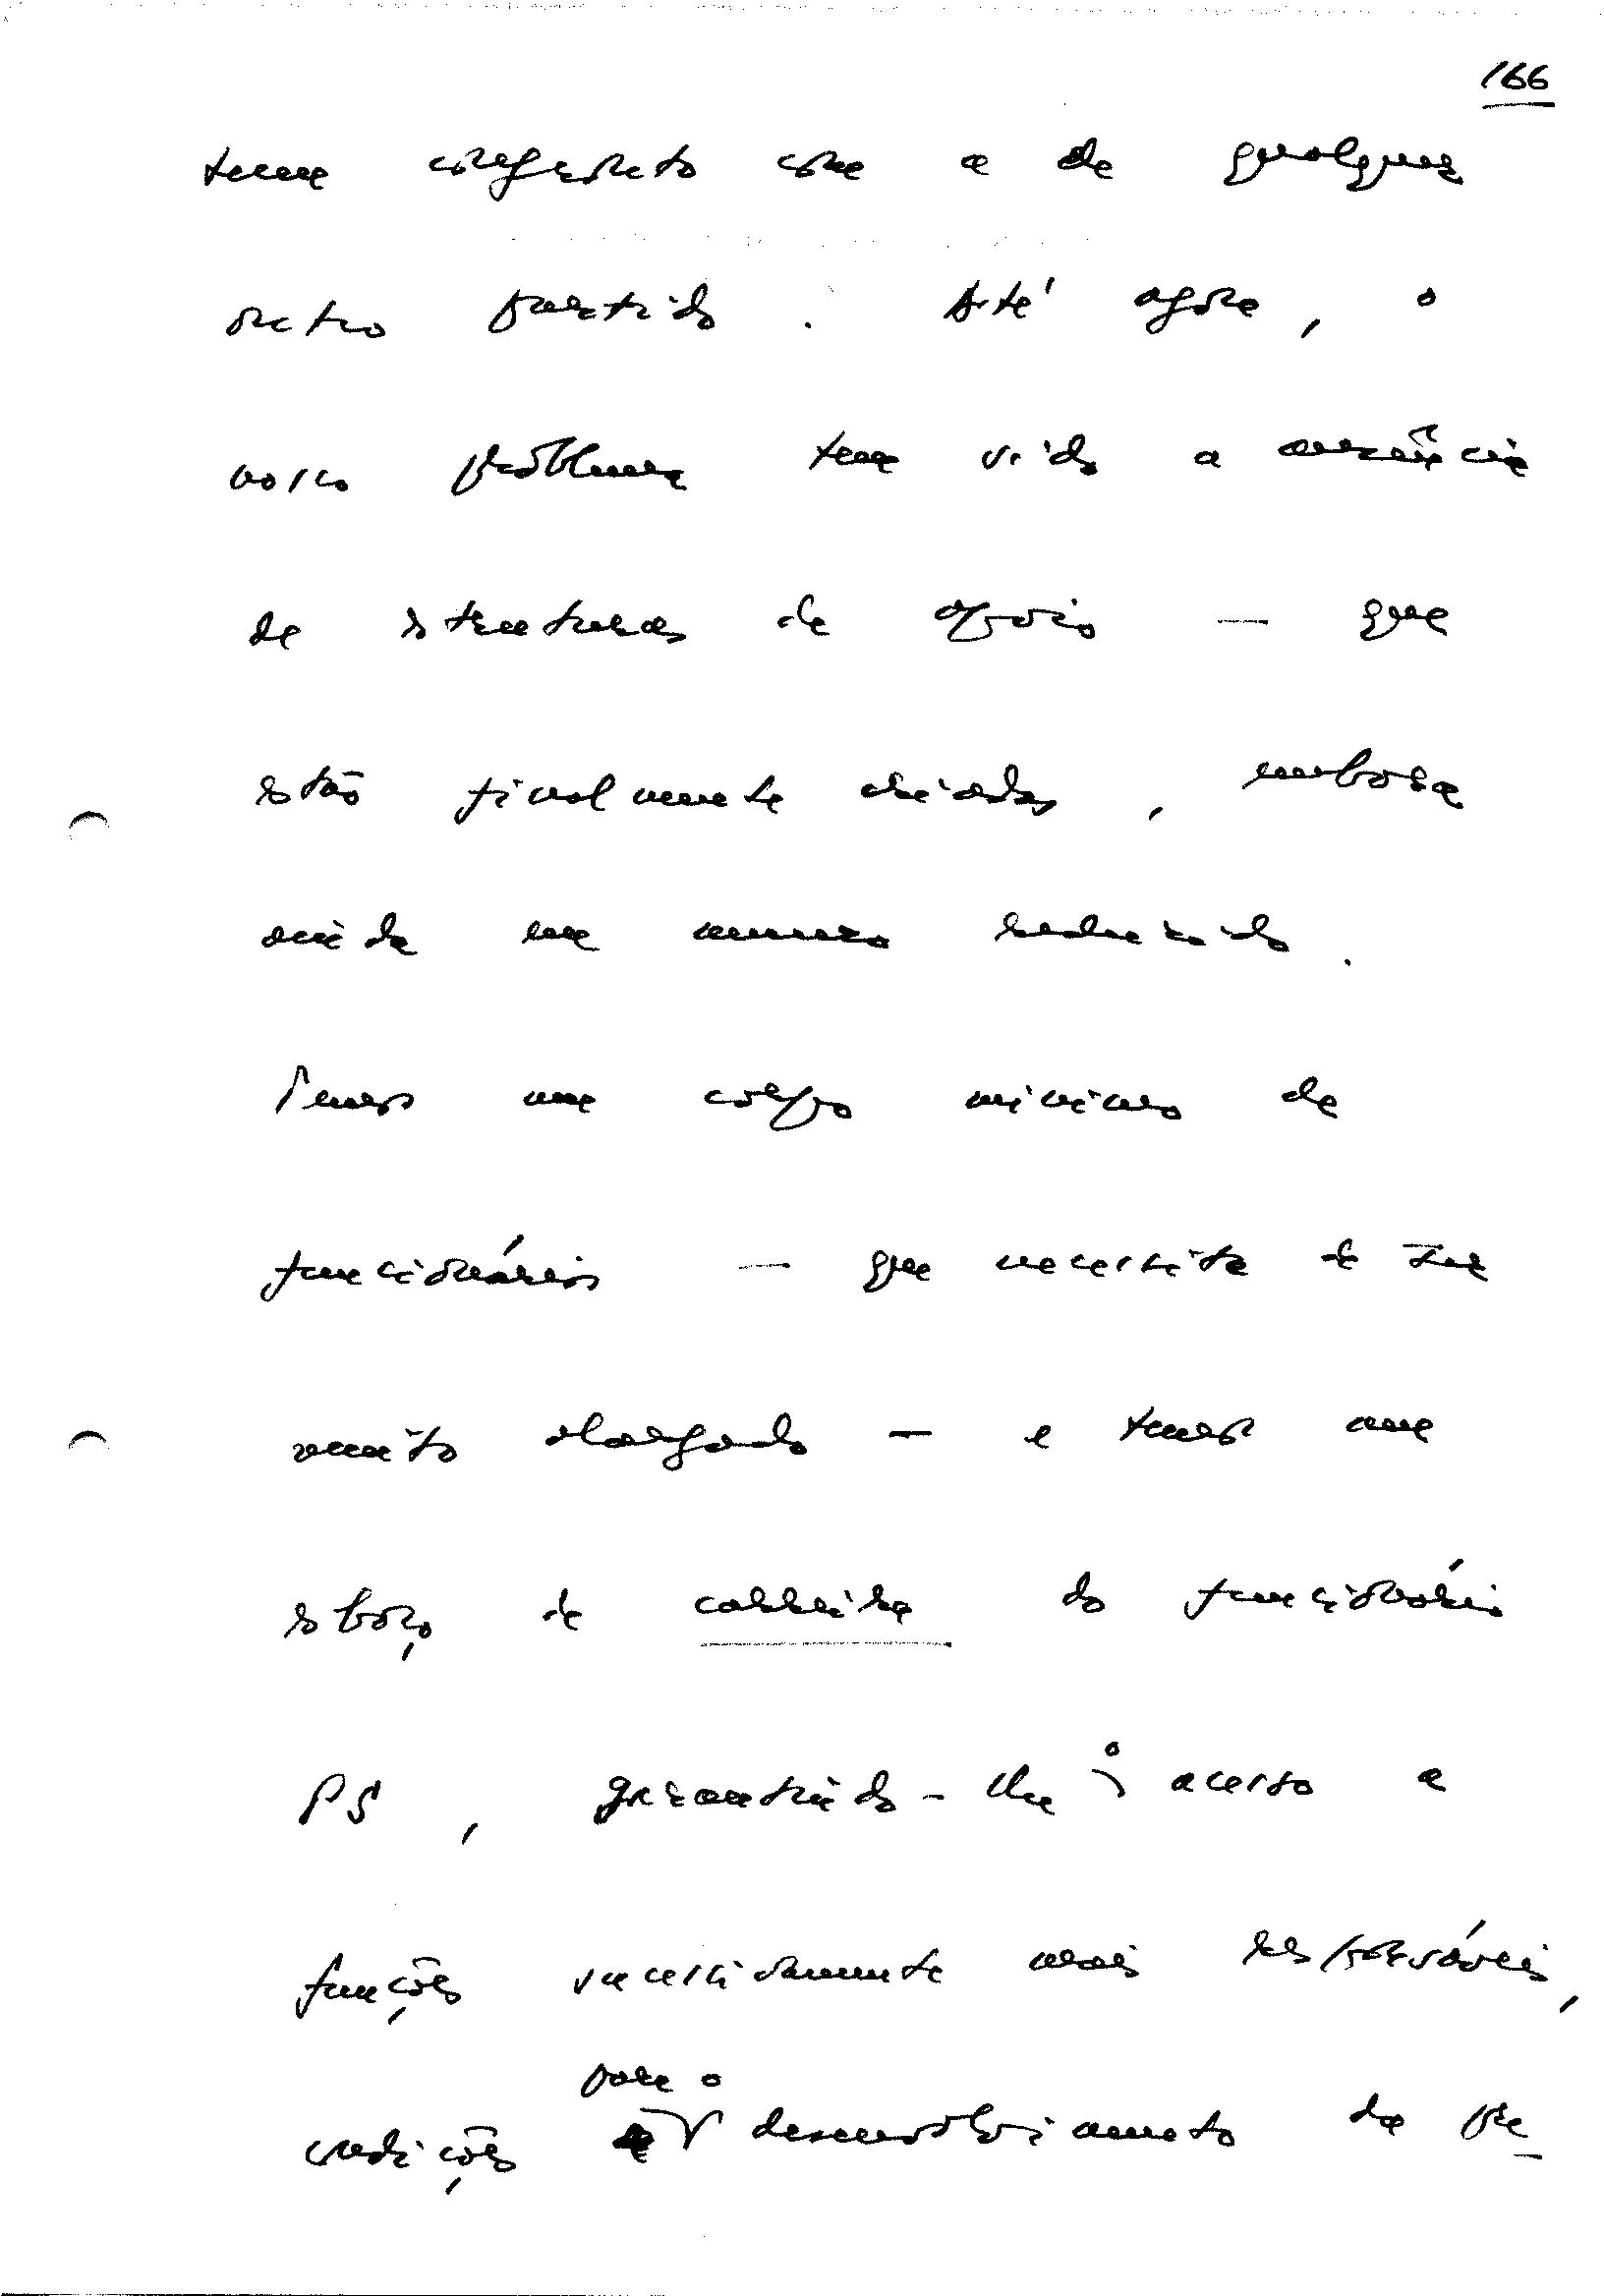 166
tem confronto com a de qualquer
outro partido. Até agora, o
nosso problema tem sido a ausência
de estruturas de apoio — que
estão finalmente criadas, embora
ainda em número reduzido.
Temos um corpo mínimo de
funcionários — que necessita de ser
muito alargado — e temos um
esboço de carreira do funcionário
PS, garantindo-lhe o acesso a
funções sucessivamente mais responsáveis,
para o
condições desenvolvimento da